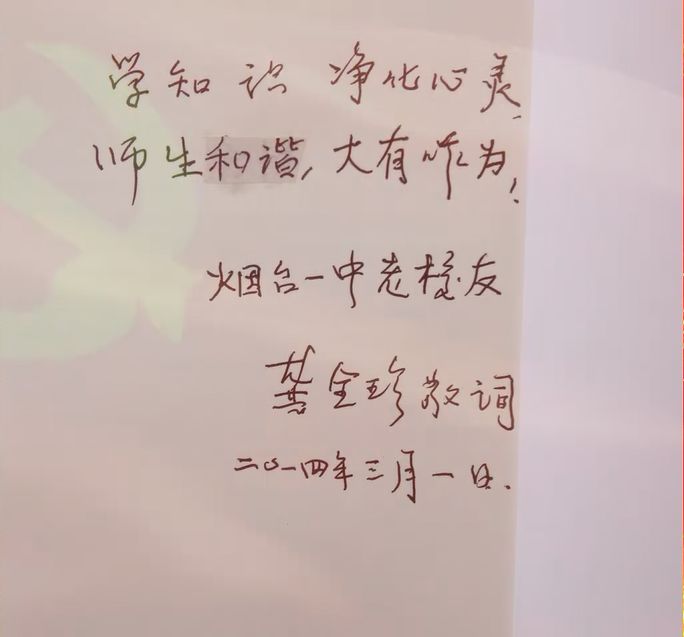 学知识 净化心灵
师生和谐,大有作为!
烟台一中老校友
龚全珍敬词
二〇一四年三月一日.